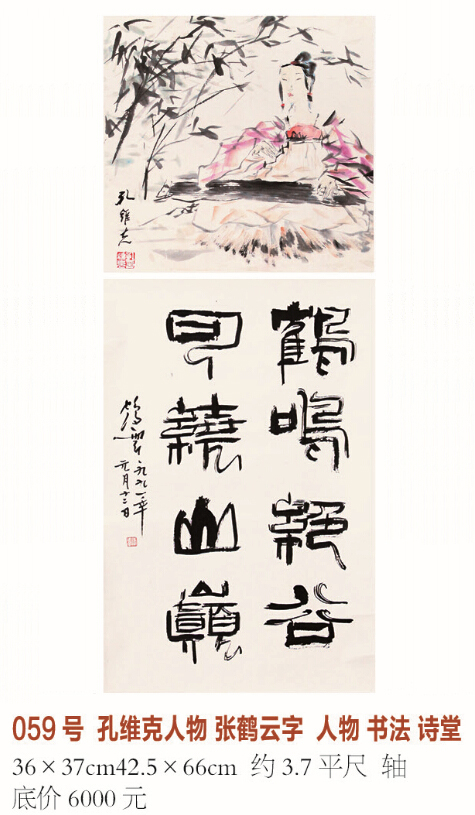 孔維克
鶴鳴絕谷
繞山巔
鹤雲 一九九一年
元月十二日
059号 孔维克人物 张鹤云字 人物 书法 诗堂
36×37cm42.5×66cm 约3.7平尺 轴
底价6000元